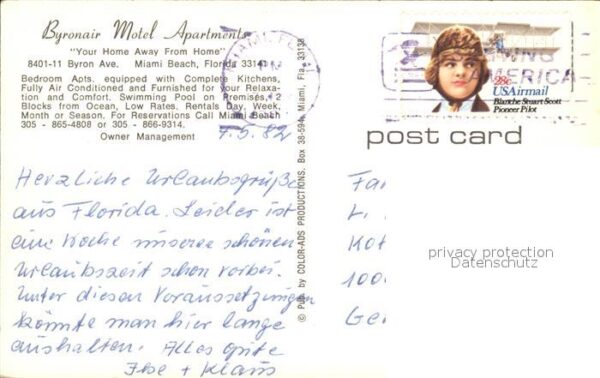 Byronair Motel Apartments
"Your Home Away From Home"
8401-11 Byron Ave. Miami Beach, Florida 33141
Bedroom Apts. equipped with Complete Kitchens,
Fully Air Conditioned and Furnished for Your Relaxa-
tion and Comfort. Swimming Pool on Premises,
Blocks from Ocean, Low Rates. Rentals Day, Week,
Month or Season. For Reservations Call Miami Beach
305 - 865-4808 or 305 - 866-9314.
Owner Management
7.5.82
Herzliche Urlaubsgrüße
aus Florida. Leider ist
eine Woche unserer schönen
Urlaubszeit schon vorbei.
Unter diesen Voraussetzungen
könnte man hier lange
aushalten. Alles gute
Ilse + Klaus
© Pub. by COLOR-ADS PRODUCTIONS, Box 38-594, Miami, Fla. 33138
MIAMI, FL
AMERICA
28c
USAirmail
Blanche Stuart Scott
Pioneer Pilot
post card
Fa
L.
Kö
100
Ge
privacy protection
Datenschutz